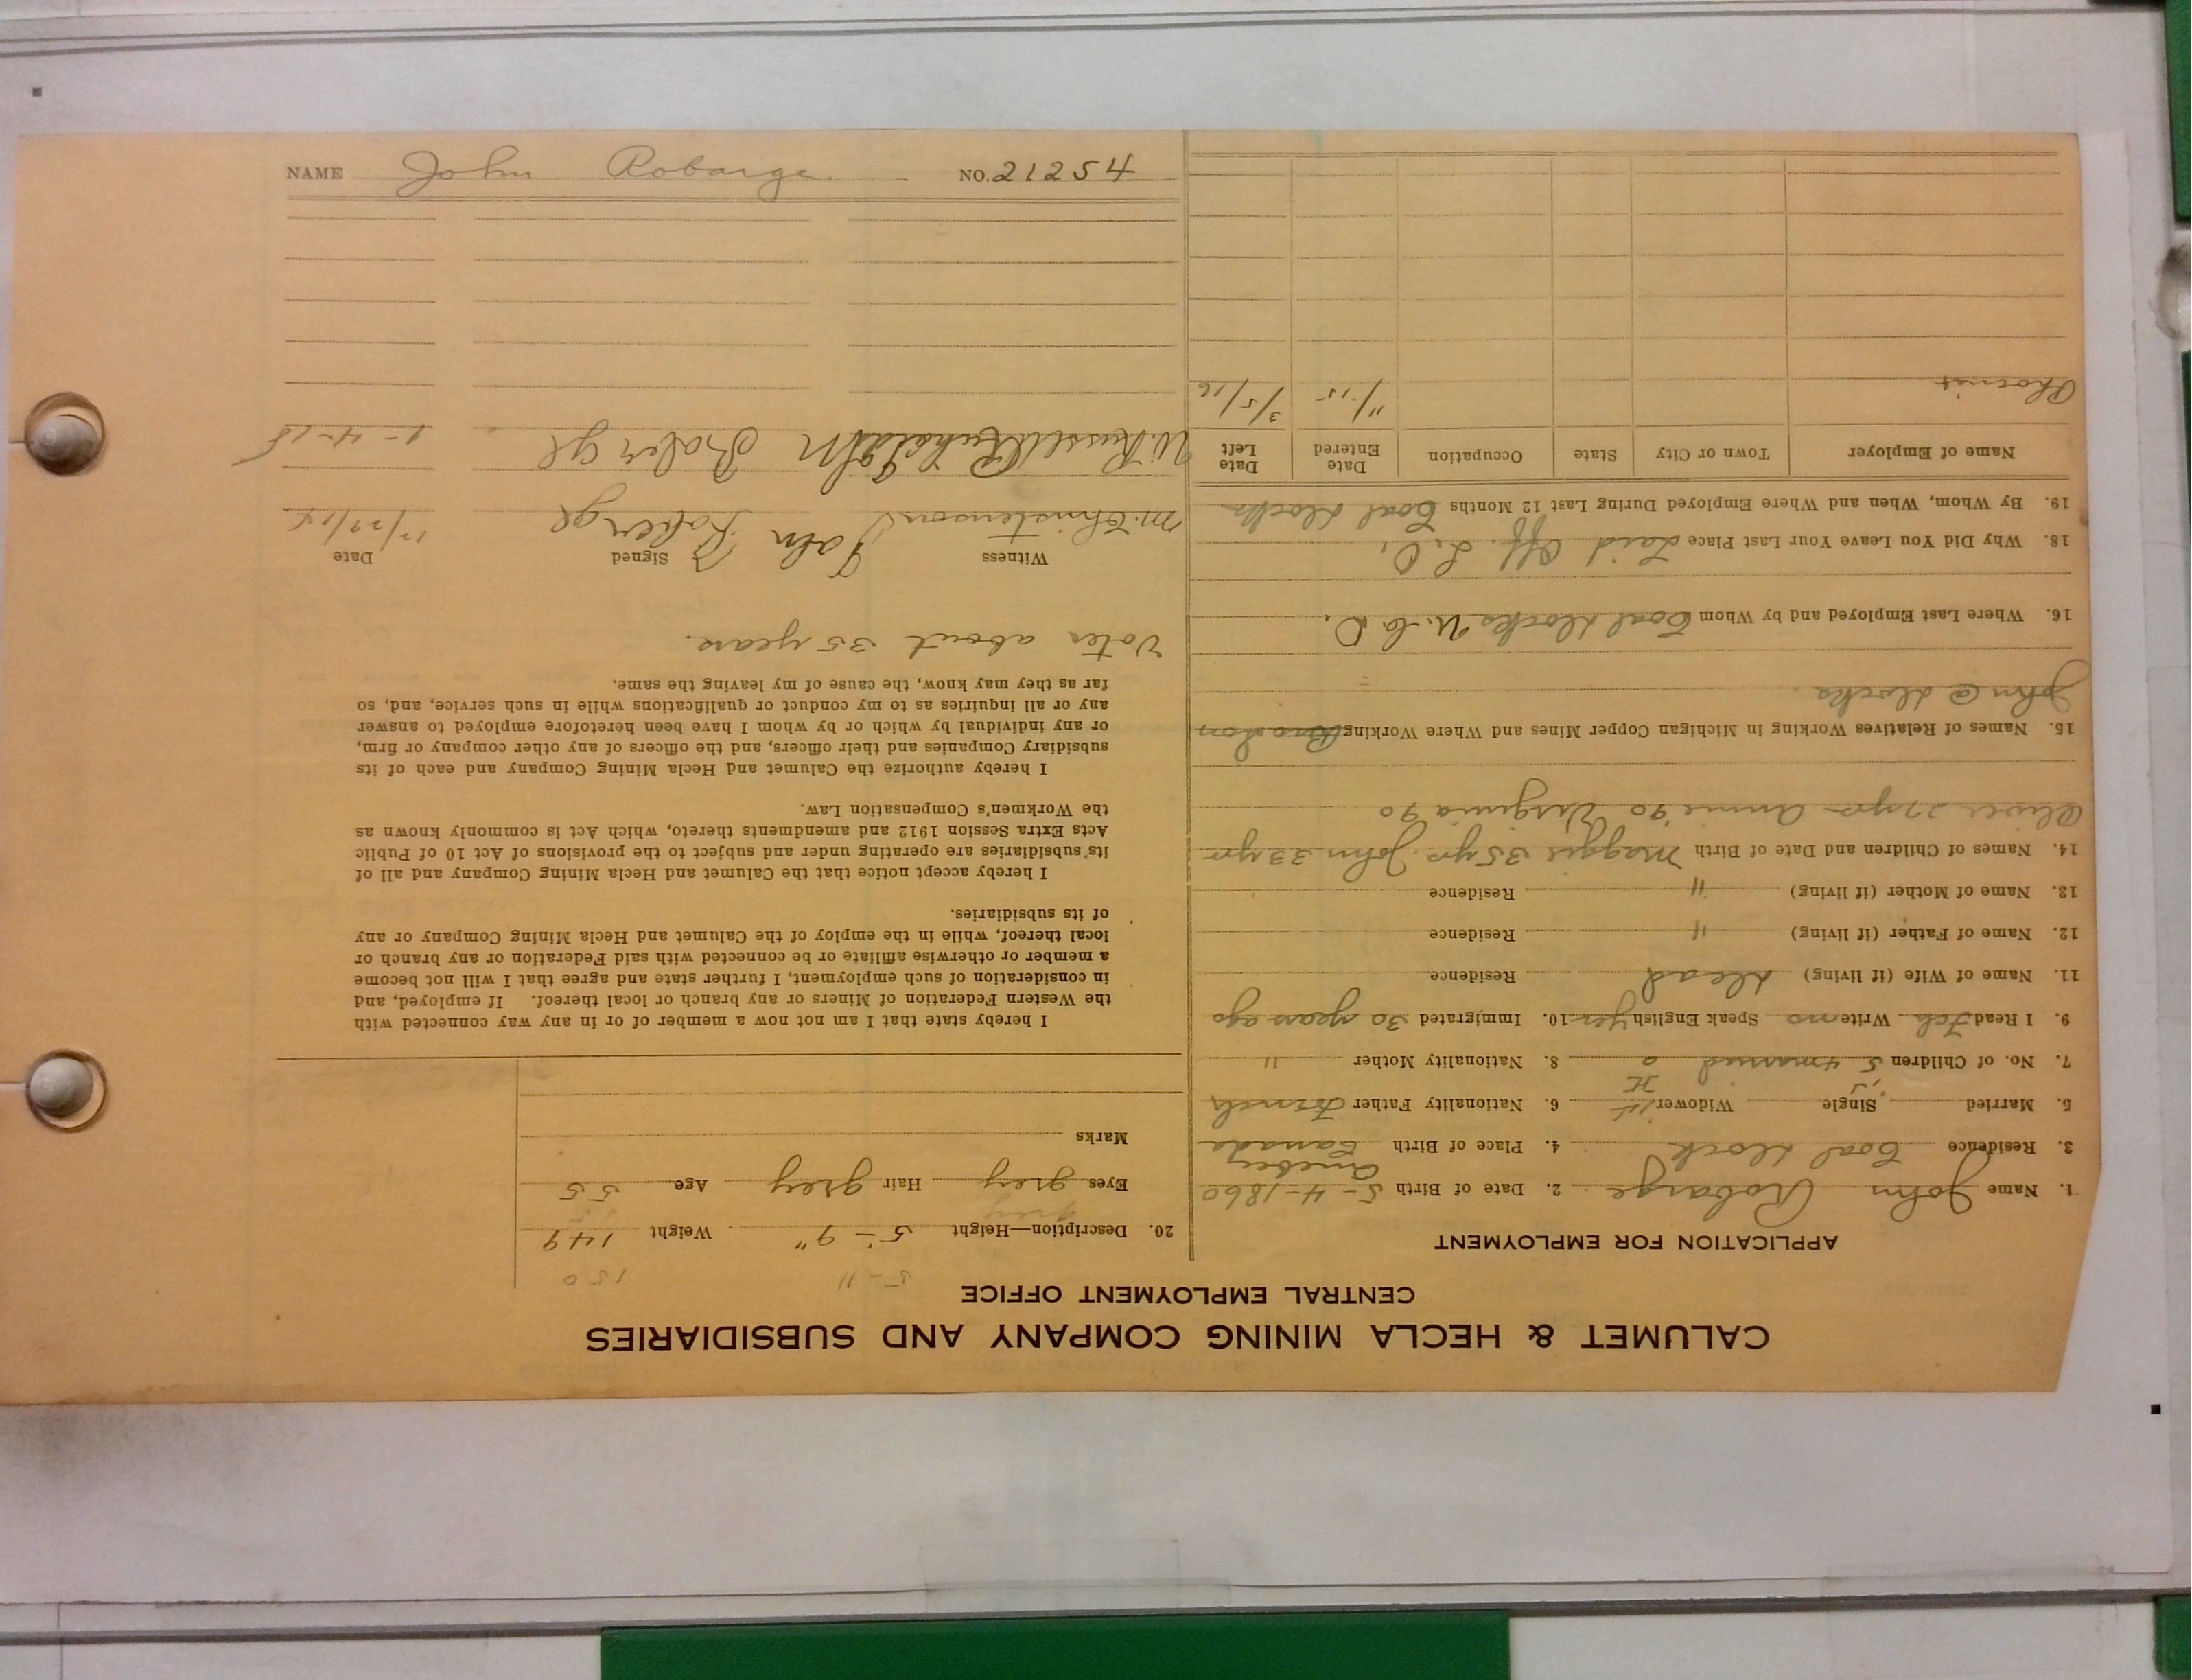 CALUMET & HECLA MINING COMPANY AND SUBSIDIARIES
CENTRAL EMPLOYMENT OFFICE
APPLICATION FOR EMPLOYMENT
1. Name John Robarge 2. Date of Birth 5-4-1860
3. Residence Coal Dock 4. Place of Birth Quebec Canada
5. Married Single Widower 6. Nationality Father French
7. No. of Children 5 4 married 8. Nationality Mother "
9. I Read Fch Write no Speak English yes 10. Immigrated 30 years ago
11. Name of Wife (if living) dead Residence
12. Name of Father (if living) " Residence
13. Name of Mother (if living) " Residence
14. Names of Children and Date of Birth Maggie 35 yrs John 33 yrs
Oliver 27 yrs Annie 90 Virginia 90
15. Names of Relatives Working in Michigan Copper Mines and Where Working son
John @ docks
16. Where Last Employed and by Whom Coal Docks
18. Why Did You Leave Your Last Place Laid Off.
19. By Whom, When and Where Employed During Last 12 Months Coal Docks
Name of Employer Town or City State Occupation Date Entered Date Left
Phoenix 11/15 3/5/16
5-11 150
20. Description—Height 5'-9" Weight 149
grey
Eyes grey Hair grey Age 55
Marks
I hereby state that I am not now a member of or in any way connected with
the Western Federation of Miners or any branch or local thereof. If employed, and
in consideration of such employment, I further state and agree that I will not become
a member or otherwise affiliate or be connected with said Federation or any branch or
local thereof, while in the employ of the Calumet and Hecla Mining Company or any
of its subsidiaries.
I hereby accept notice that the Calumet and Hecla Mining Company and all of
its subsidiaries are operating under and subject to the provisions of Act 10 of Public
Acts Extra Session 1912 and amendments thereto, which Act is commonly known as
the Workmen's Compensation Law.
I hereby authorize the Calumet and Hecla Mining Company and each of its
subsidiary Companies and their officers, and the officers of any other company or firm,
or any individual by which or by whom I have been heretofore employed to answer
any or all inquiries as to my conduct or qualifications while in such service, and, so
far as they may know, the cause of my leaving the same.
Voter about 35 years.
Witness Signed Date
M. Christenson John Roberge
W. Russell John Roberge
NAME John Robarge. NO. 21254